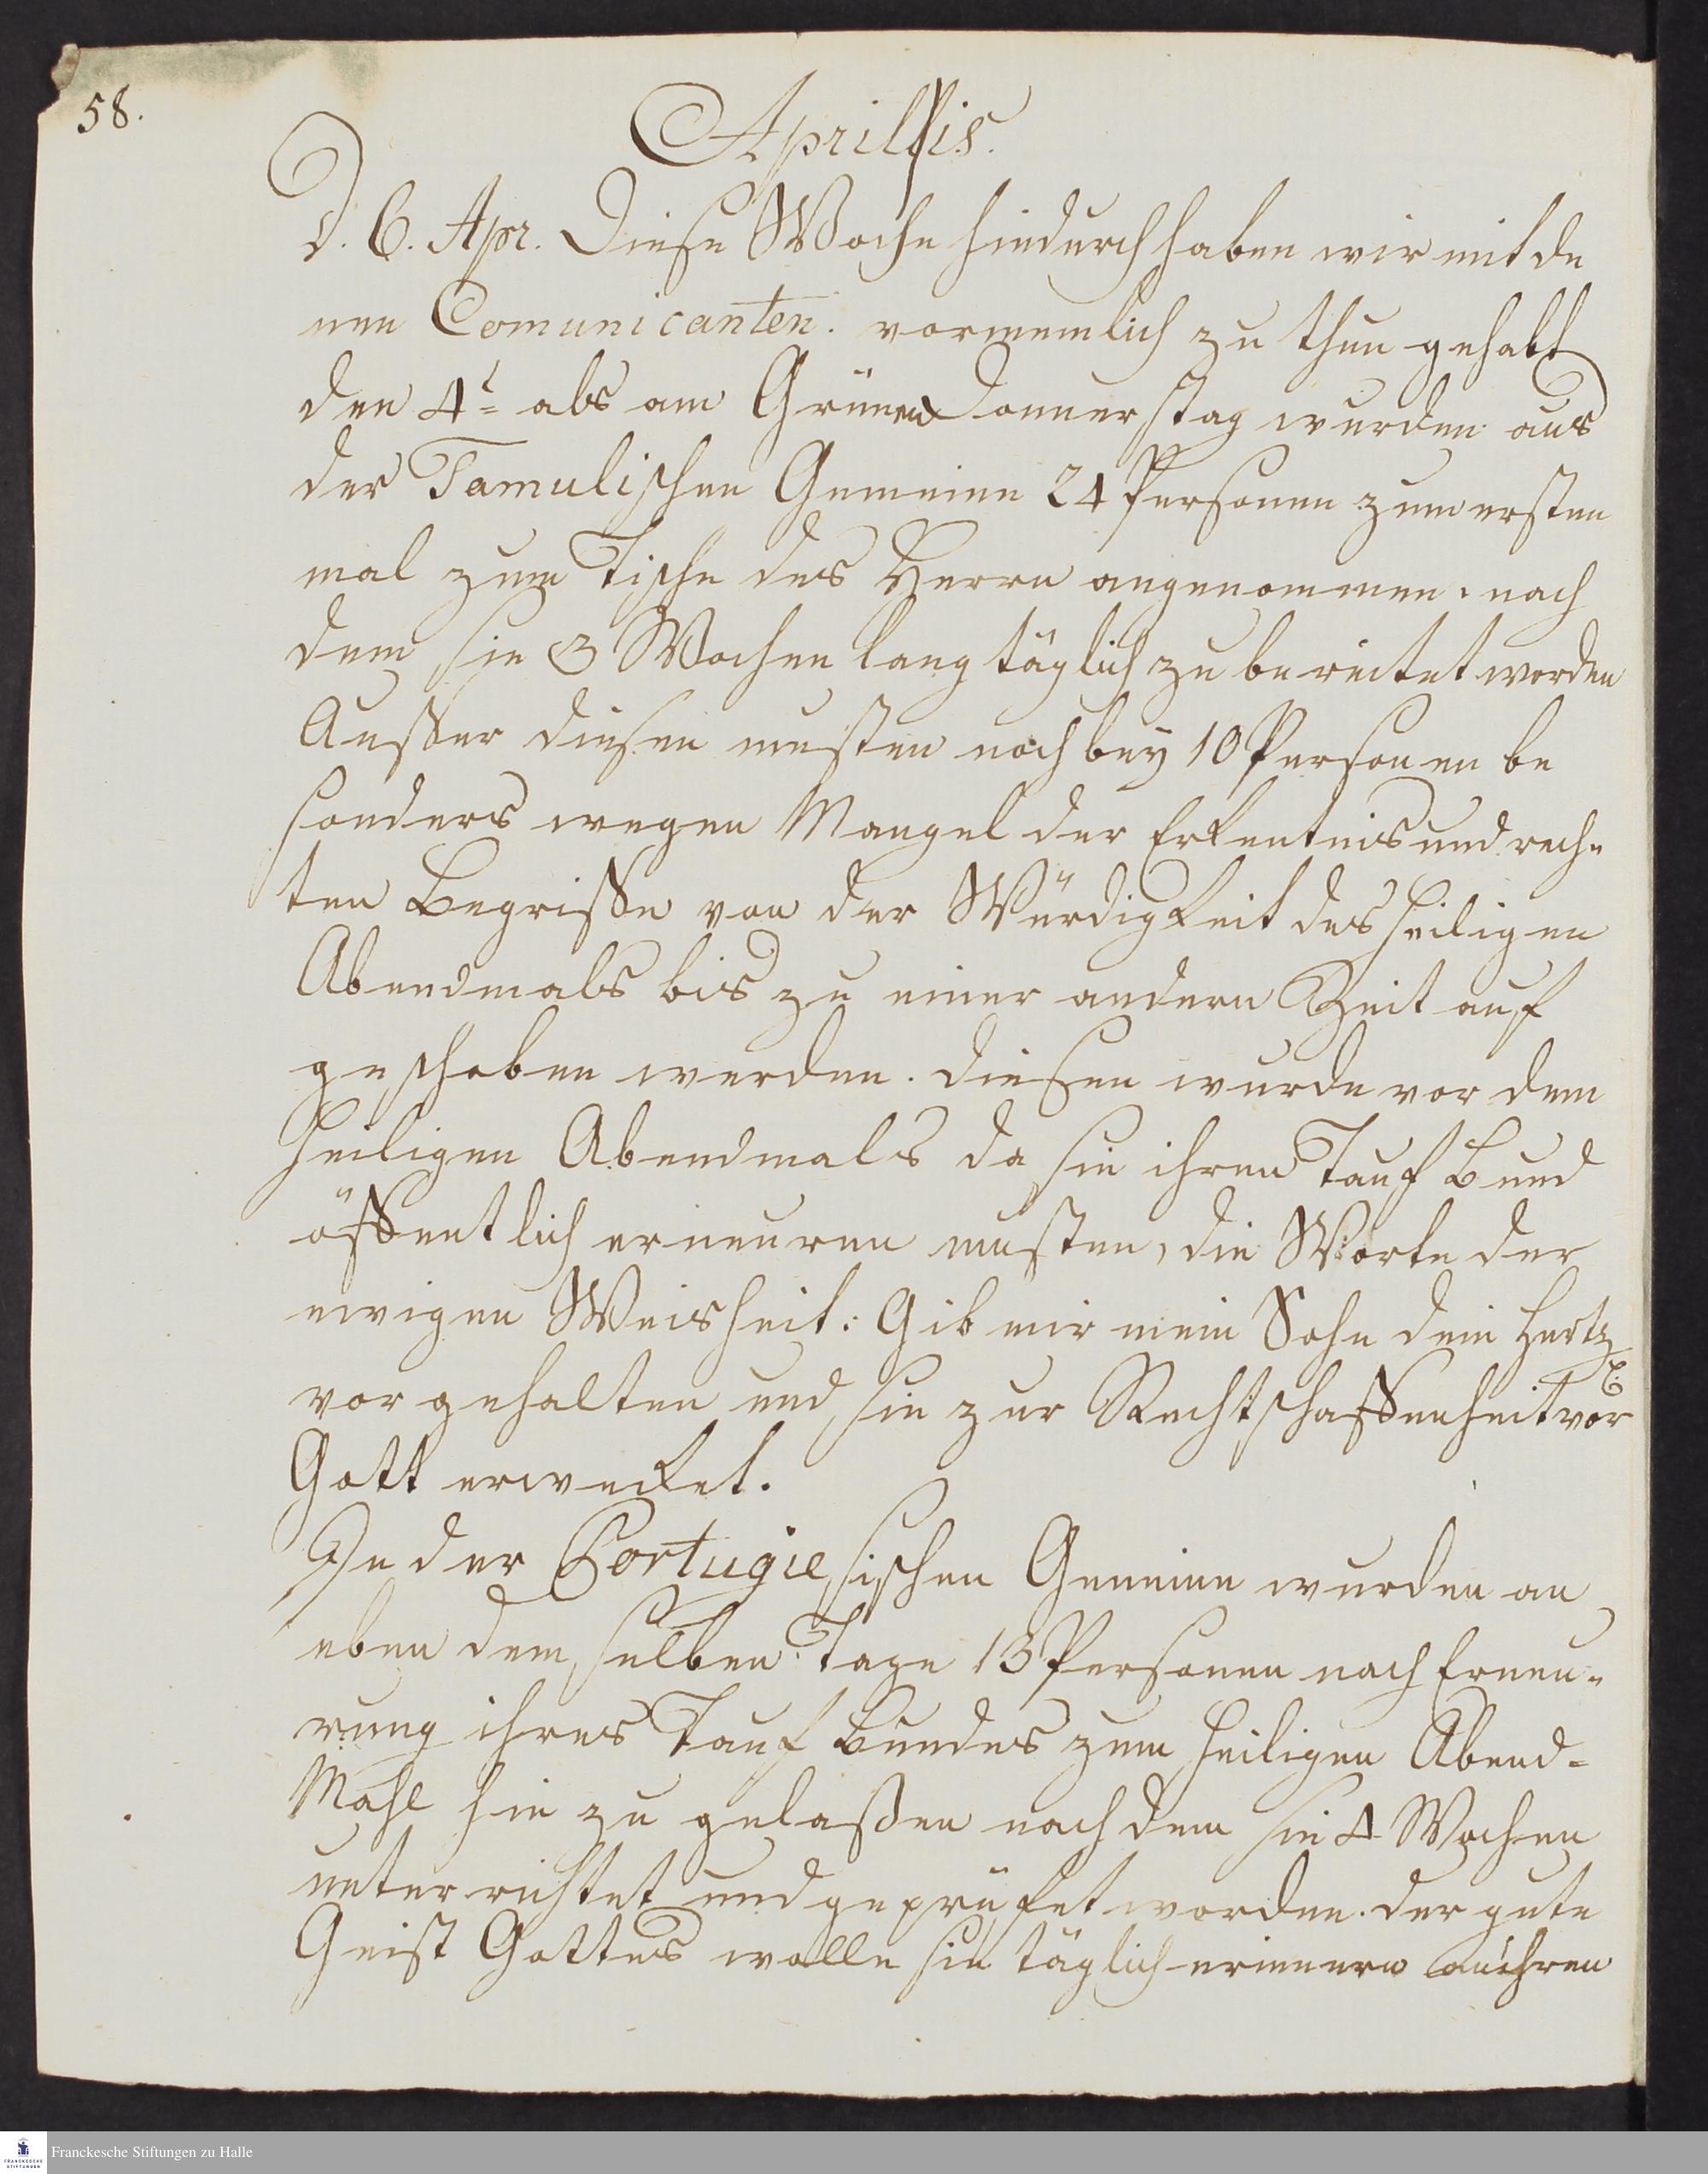 58.
Aprillis.
D. 6. Apr. Diese Woche hindurch haben wir mit de
nen Com̅unicanten. vornemlich zu thun gehabt
den 4t= als am Grünen Donnerstag wurden aus
der Tamulischen Gemeine 24 Personen zum ersten
mal zum Tische des Herrn angenommen. nach
dem sie 3 Wochen lang täglich zu bereitet worden
Ausser diesen musten noch bey 10 Personen be
sonders wegen Mangel der Erkentnis und rech=
ten Begriffe von der Würdigkeit des heiligen
Abendmals bis zu einer andern Zeit auf
geschoben werden. Diesen wurde vor dem
heiligen Abendmals da sie ihren Tauf Bund
öffentlich erneuren musten, die Worte der
ewigen Weisheit: Gib mir mein Sohn dein Hertz
vor gehalten und sie zur Rechtschaffenheit vor
Gott erwecket.
In der Portugiesischen Gemeine wurden an
eben dem selben Tage 13 Personen nach Erneu=
rung ihres Tauf Bundes zum heiligen Abend=
Mahl hin zu gelaßen nach dem sie 4 Wochen
unter richtet und geprüfet worden. der gute
Geist Gottes wolle sie täglich erinnern an ihren
Franckesche Stiftungen zu Halle
FRANCKESCHE
STIFTUNGEN